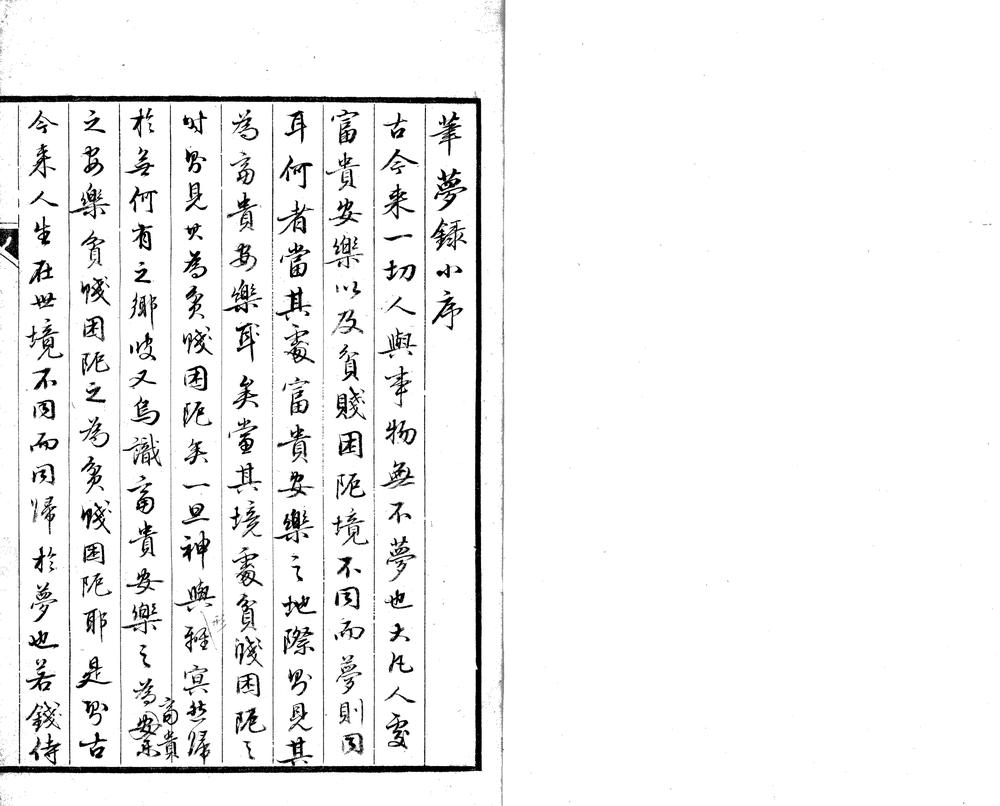 華夢錄小序
古今来一切人與事物無不夢也大凡人處
富貴安樂以及貧賤困阨境不同而夢則同
耳何者當其處富貴安樂之地際則見其
為富貴安樂耳矣當其境處貧賤困阨之
时則見其為貧賤困阨矣一旦神與形冥然歸
於無何有之鄉時又烏識富貴安樂之為富貴
之安樂貧賤困阨之為貧賤困阨耶是則古
今来人生在世境不同而同歸於夢也若錢侍